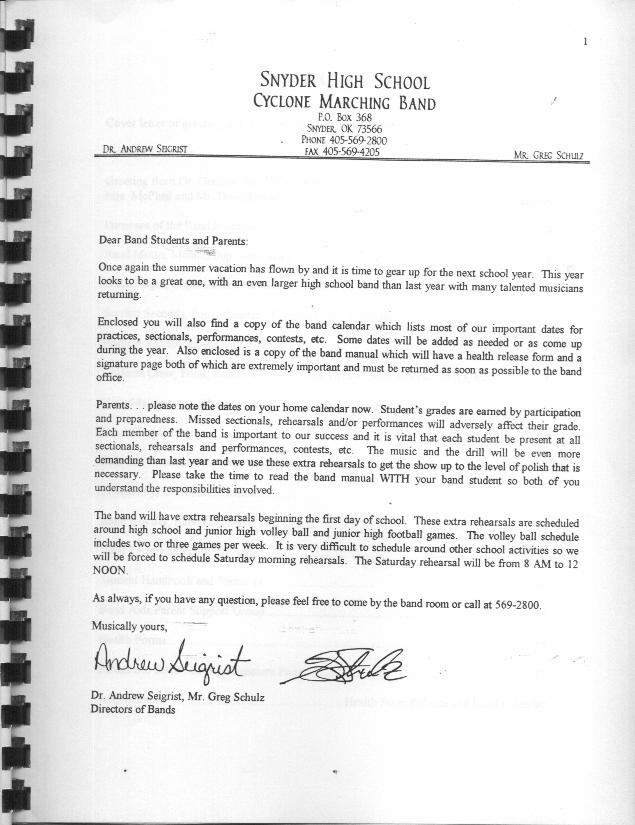 1
SNYDER HIGH SCHOOL
CYCLONE MARCHING BAND
P.O. BOX 368
SNYDER, OK 73566
PHONE 405-569-2800
FAX 405-569-4205
DR. ANDREW SEIGRIST
MR. GREG SCHULZ
Dear Band Students and Parents:
Once again the summer vacation has flown by and it is time to gear up for the next school year. This year
looks to be a great one, with an even larger high school band than last year with many talented musicians
returning.
Enclosed you will also find a copy of the band calendar which lists most of our important dates for
practices, sectionals, performances, contests, etc. Some dates will be added as needed or as come up
during the year. Also enclosed is a copy of the band manual which will have a health release form and a
signature page both of which are extremely important and must be returned as soon as possible to the band
office.
Parents. . . please note the dates on your home calendar now. Student's grades are earned by participation
and preparedness. Missed sectionals, rehearsals and/or performances will adversely affect their grade.
Each member of the band is important to our success and it is vital that each student be present at all
sectionals, rehearsals and performances, contests, etc. The music and the drill will be even more
demanding than last year and we use these extra rehearsals to get the show up to the level of polish that is
necessary. Please take the time to read the band manual WITH your band student so both of you
understand the responsibilities involved.
The band will have extra rehearsals beginning the first day of school. These extra rehearsals are scheduled
around high school and junior high volley ball and junior high football games. The volley ball schedule
includes two or three games per week. It is very difficult to schedule around other school activities so we
will be forced to schedule Saturday morning rehearsals. The Saturday rehearsal will be from 8 AM to 12
NOON.
As always, if you have any question, please feel free to come by the band room or call at 569-2800.
Musically yours,
Andrew Seigrist
Dr. Andrew Seigrist, Mr. Greg Schulz
Directors of Bands